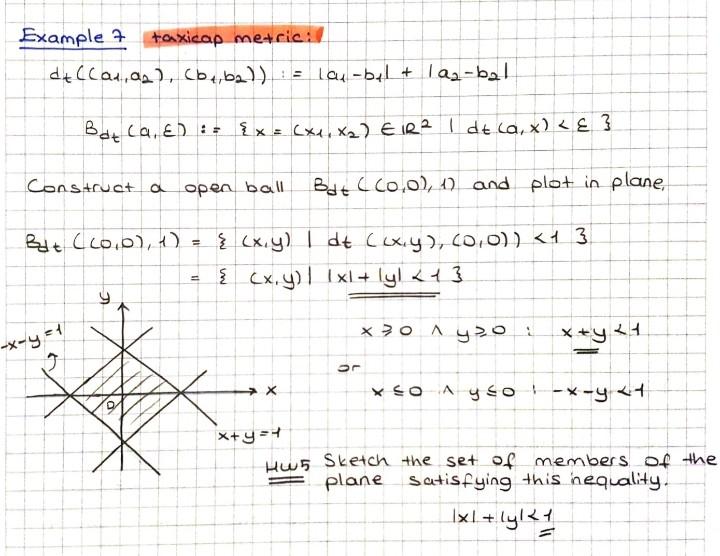 Example 7 taxicap metric:
dt((a1,a2), (b1,b2)) := |a1-b1| + |a2-b2|
Bdt (a,ε) := { x = (x1,x2) ∈ IR² | dt (a,x) < ε }
Construct a open ball Bdt ((0,0), 1) and plot in plane,
Bdt ((0,0), 1) = { (x,y) | dt ((x,y), (0,0)) < 1 }
= { (x,y) | |x| + |y| < 1 }
y
-x-y=1
x ≥ 0 ∧ y ≥ 0 : x+y < 1
or
x
x ≤ 0 ∧ y ≤ 0 : -x-y < 1
x+y=1
HW5 Sketch the set of members of the
plane satisfying this inequality.
|x| + |y| < 1